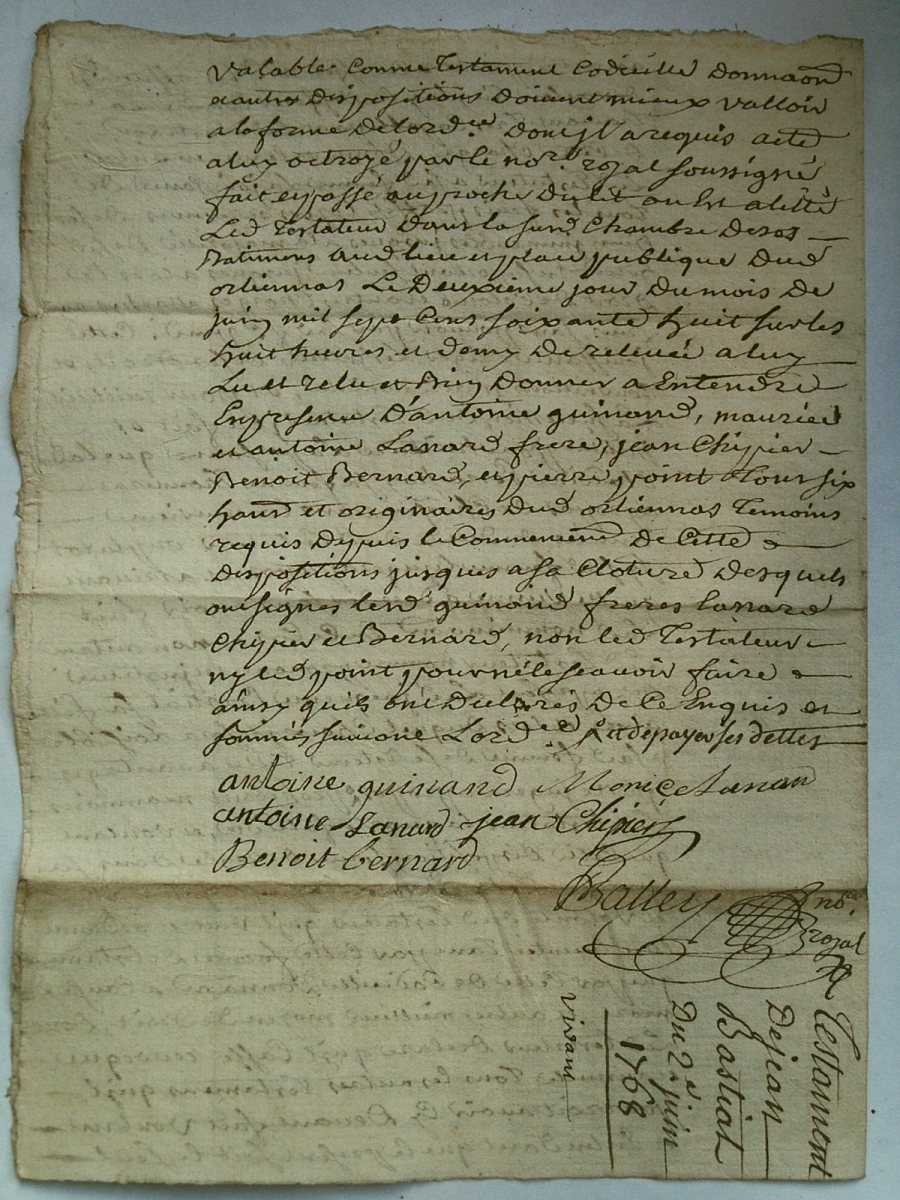 valable comme Testament Codicille donnaond
et autres dispositions doivent mieux valloir
a la forme de lord.ce dont jl a requis acte
a luy octroyé par le nor.e royal soussigné
fait et passé au proche du lit ou Est alitté
Led Testateur dans la surd.e Chambre de ses
Batimens aud lieu et place publique dud
orliennas Le Deuxieme jour du mois de
juin mil sept Cens soixante huit sur les
huit heures et demy de relevée a luy
Lu et relu et Bien Donner a Entendre
En presence D'antoine guinand, maurice
et antoine Lanard frere, jean Chipier
Benoit Bernard, et pierre point tour six
hants et originaires dud orliennas Temoins
requis depuis le Commencem.d de Cette
dispositions jusques a sa Cloture desquels
ont signés lesd guinand freres Lanard
Chipier et Bernard, non led Testateur
ny led point pour ne le scavoir faire
ainsy quils ont Déclarés de ce Enquis et
sommés suivant Lord.ce et de payer ses dettes
antoine guinand Morice Lanan
antoine Lanard jean Chipier
Benoit bernard
Balley nore.
royal
Testament
De jean
Bastiat
Du 2.e juin
1768
vivant